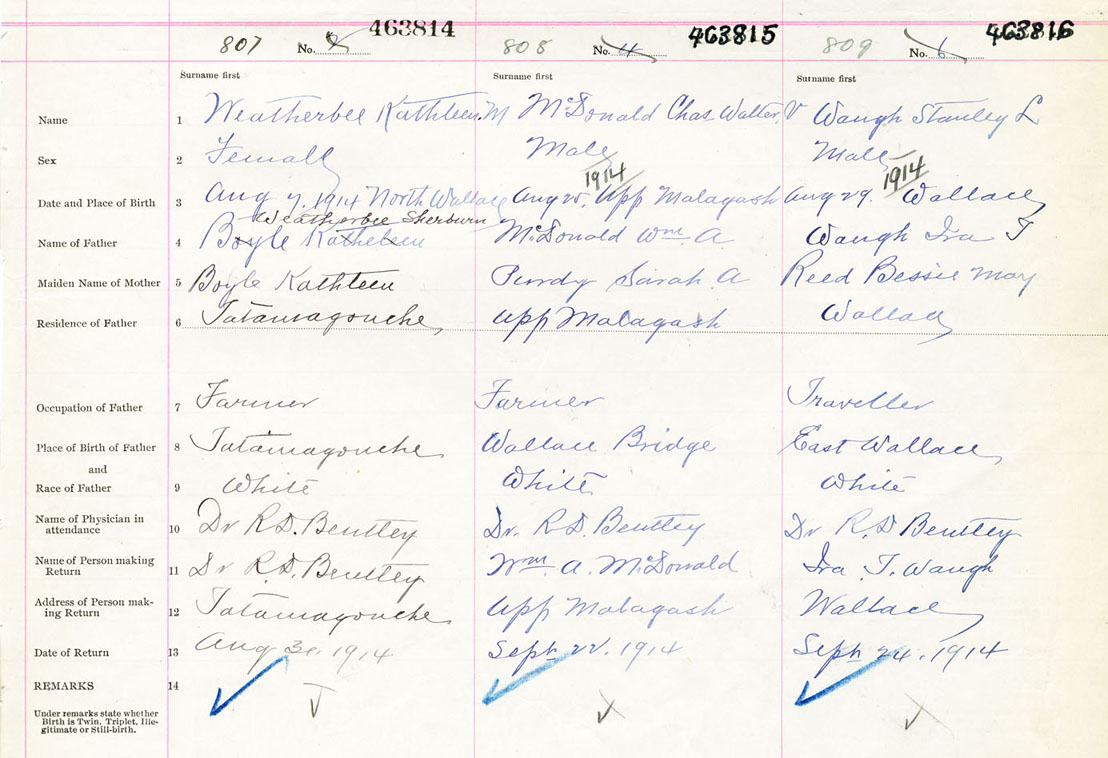 807 No. 2 463814 808 No. 4 463815 809 No. 6 463816
Surname first Surname first Surname first
Name 1 Weatherbee Kathleen. M McDonald Chas. Walter. V Waugh Stanley L
Sex 2 Female Male Male
1914 1914
Date and Place of Birth 3 Aug 7, 1914 North Wallace Aug 25, Upp Malagash Aug 29. Wallace
Weatherbee Sherburn
Name of Father 4 Boyle Katheleen McDonald Wm. A Waugh Ira T
Maiden Name of Mother 5 Boyle Kathleen Purdy Sarah. A Reed Bessie May
Residence of Father 6 Tatamagouche Upp Malagash Wallace
Occupation of Father 7 Farmer Farmer Traveller
Place of Birth of Father 8 Tatamagouche Wallace Bridge East Wallace
and
Race of Father 9 White White White
Name of Physician in
attendance 10 Dr R.D. Bentley Dr. R.D. Bentley Dr R.D. Bentley
Name of Person making
Return 11 Dr R.D. Bentley Wm. A. McDonald Ira T. Waugh
Address of Person mak-
ing Return 12 Tatamagouche Upp Malagash Wallace
Date of Return 13 Aug 1914 Sept 22. 1914 Sept 24. 1914
REMARKS 14
Under remarks state whether
Birth is Twin, Triplet, Ille-
gitimate or Still-birth.